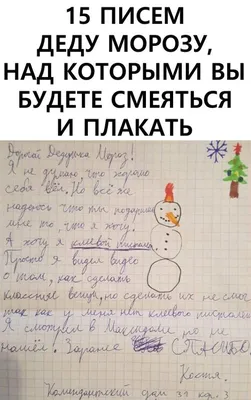 15 ПИСЕМ
ДЕДУ МОРОЗУ,
НАД КОТОРЫМИ ВЫ
БУДЕТЕ СМЕЯТЬСЯ
И ПЛАКАТЬ
Дорогой Дедушка Мороз!
Я не думаю, что хорошо
себя вёл. Но всё же
надеюсь что ты подаришь
мне то, что я хочу.
А хочу я клеевой пистолет.
Просто я видел видео
о том, как сделать
классные вещи, но сделать их не смог
так как у меня нет клеевого пистолета
Я смотрел в Максидоме но не
нашёл. Заранее СПАСИБО.
Костя.
Комендантский дом 39 кр. 3